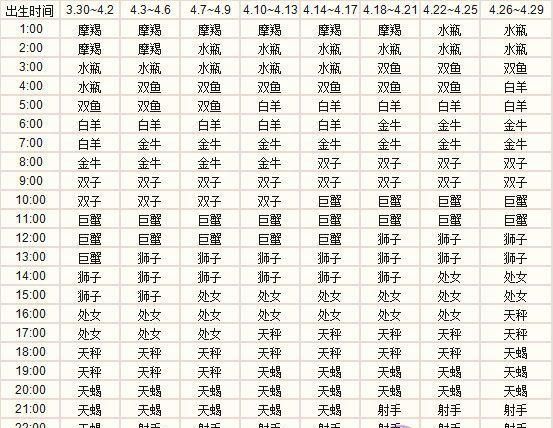 出生时间 3.30~4.2 4.3~4.6 4.7~4.9 4.10~4.13 4.14~4.17 4.18~4.21 4.22~4.25 4.26~4.29
1:00 摩羯 摩羯 摩羯 摩羯 摩羯 摩羯 水瓶 水瓶
2:00 摩羯 摩羯 水瓶 水瓶 水瓶 水瓶 水瓶 水瓶
3:00 水瓶 水瓶 水瓶 水瓶 水瓶 双鱼 双鱼 双鱼
4:00 水瓶 双鱼 双鱼 双鱼 双鱼 双鱼 双鱼 白羊
5:00 双鱼 双鱼 双鱼 白羊 白羊 白羊 白羊 白羊
6:00 白羊 白羊 白羊 白羊 白羊 金牛 金牛 金牛
7:00 白羊 金牛 金牛 金牛 金牛 金牛 金牛 金牛
8:00 金牛 金牛 金牛 金牛 双子 双子 双子 双子
9:00 双子 双子 双子 双子 双子 双子 双子 双子
10:00 双子 双子 双子 双子 巨蟹 巨蟹 巨蟹 巨蟹
11:00 巨蟹 巨蟹 巨蟹 巨蟹 巨蟹 巨蟹 巨蟹 巨蟹
12:00 巨蟹 巨蟹 巨蟹 巨蟹 巨蟹 狮子 狮子 狮子
13:00 巨蟹 狮子 狮子 狮子 狮子 狮子 狮子 狮子
14:00 狮子 狮子 狮子 狮子 狮子 狮子 处女 处女
15:00 狮子 狮子 处女 处女 处女 处女 处女 处女
16:00 处女 处女 处女 处女 处女 处女 处女 天秤
17:00 处女 处女 处女 天秤 天秤 天秤 天秤 天秤
18:00 天秤 天秤 天秤 天秤 天秤 天秤 天秤 天蝎
19:00 天秤 天秤 天秤 天秤 天蝎 天蝎 天蝎 天蝎
20:00 天蝎 天蝎 天蝎 天蝎 天蝎 天蝎 天蝎 天蝎
21:00 天蝎 天蝎 天蝎 天蝎 天蝎 射手 射手 射手
22:00 天蝎 射手 射手 射手 射手 射手 射手 射手